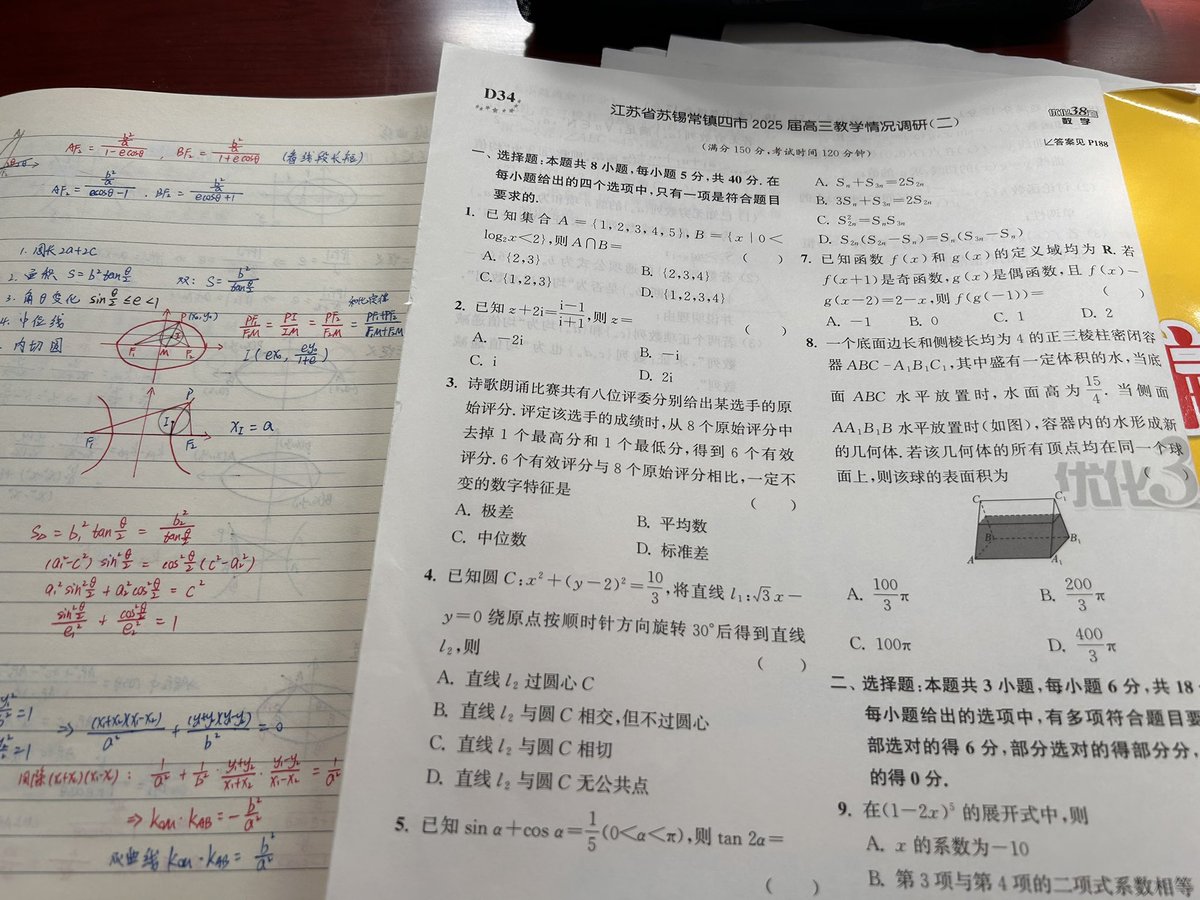 AF₁ = (b²/a)/(1-ecosθ), BF₂ = (b²/a)/(1+ecosθ) (看线段长短)
AF₁ = (b²/a)/(ecosθ-1), BF₂ = (b²/a)/(ecosθ+1)
1. 周长2a+2c
2. 面积 S=b²tan θ/2 双: S= b²/tan θ/2
3. 角θ变化 sin θ/2 ≤e<1
4. 中位线
内切圆
P(x₀,y₀)
I
F₁ M F₂
PF₁/F₁M = PI/IM = PF₂/F₂M = (PF₁+PF₂)/(F₁M+F₂M)
I(ex₀, ey₀/(1+e))
P
I
F₁ F₂
x_I = a
S△ = b₁² tan θ/2 = b₂²/tan θ/2
(a₁²-c²) sin² θ/2 = cos² θ/2 (c²-a₂²)
a₁² sin² θ/2 + a₂² cos² θ/2 = c²
(sin² θ/2)/e₁² + (cos² θ/2)/e₂² = 1
⇒ (x₁+x₂)(x₁-x₂)/a² + (y₁+y₂)(y₁-y₂)/b² = 0
同除(x₁+x₂)(x₁-x₂): 1/a² + 1/b² · (y₁+y₂)/(x₁+x₂) · (y₁-y₂)/(x₁-x₂) = 1/a²
⇒ k_OM · k_AB = - b²/a²
双曲线 k_OM · k_AB = b²/a²
D34
江苏省苏锡常镇四市 2025 届高三教学情况调研(二)
(满分 150 分,考试时间 120 分钟)
优化38套
数学
答案见 P188
一、选择题:本题共 8 小题,每小题 5 分,共 40 分. 在
每小题给出的四个选项中,只有一项是符合题目
要求的.
1. 已知集合 A={1,2,3,4,5},B={x|0<
log₂x<2},则 A∩B= ( )
A. {2,3} B. {2,3,4}
C. {1,2,3} D. {1,2,3,4}
2. 已知 z+2i=(i-1)/(i+1),则 z= ( )
A. -2i B. -i
C. i D. 2i
3. 诗歌朗诵比赛共有八位评委分别给出某选手的原
始评分. 评定该选手的成绩时,从 8 个原始评分中
去掉 1 个最高分和 1 个最低分,得到 6 个有效
评分. 6 个有效评分与 8 个原始评分相比,一定不
变的数字特征是 ( )
A. 极差 B. 平均数
C. 中位数 D. 标准差
4. 已知圆 C:x²+(y-2)²=10/3,将直线 l₁:√3x-
y=0 绕原点按顺时针方向旋转 30°后得到直线
l₂,则 ( )
A. 直线 l₂ 过圆心 C
B. 直线 l₂ 与圆 C 相交,但不过圆心
C. 直线 l₂ 与圆 C 相切
D. 直线 l₂ 与圆 C 无公共点
5. 已知 sin α+cos α=1/5(0<α<π),则 tan 2α=
( )
A. Sₙ+S₃ₙ=2S₂ₙ
B. 3Sₙ+S₃ₙ=2S₂ₙ
C. S₂ₙ²=SₙS₃ₙ
D. S₂ₙ(S₂ₙ-Sₙ)=Sₙ(S₃ₙ-Sₙ)
7. 已知函数 f(x)和 g(x)的定义域均为 R. 若
f(x+1)是奇函数,g(x)是偶函数,且 f(x)-
g(x-2)=2-x,则 f(g(-1))= ( )
A. -1 B. 0 C. 1 D. 2
8. 一个底面边长和侧棱长均为 4 的正三棱柱密闭容
器 ABC-A₁B₁C₁,其中盛有一定体积的水,当底
面 ABC 水平放置时,水面高为 15/4. 当侧面
AA₁B₁B 水平放置时(如图),容器内的水形成新
的几何体. 若该几何体的所有顶点均在同一个球
面上,则该球的表面积为 ( )
优化3
C C₁
B B₁
A A₁
A. 100/3 π B. 200/3 π
C. 100π D. 400/3 π
二、选择题:本题共 3 小题,每小题 6 分,共 18
每小题给出的选项中,有多项符合题目要
部选对的得 6 分,部分选对的得部分分,
的得 0 分.
9. 在(1-2x)⁵ 的展开式中,则
A. x 的系数为-10
B. 第 3 项与第 4 项的二项式系数相等